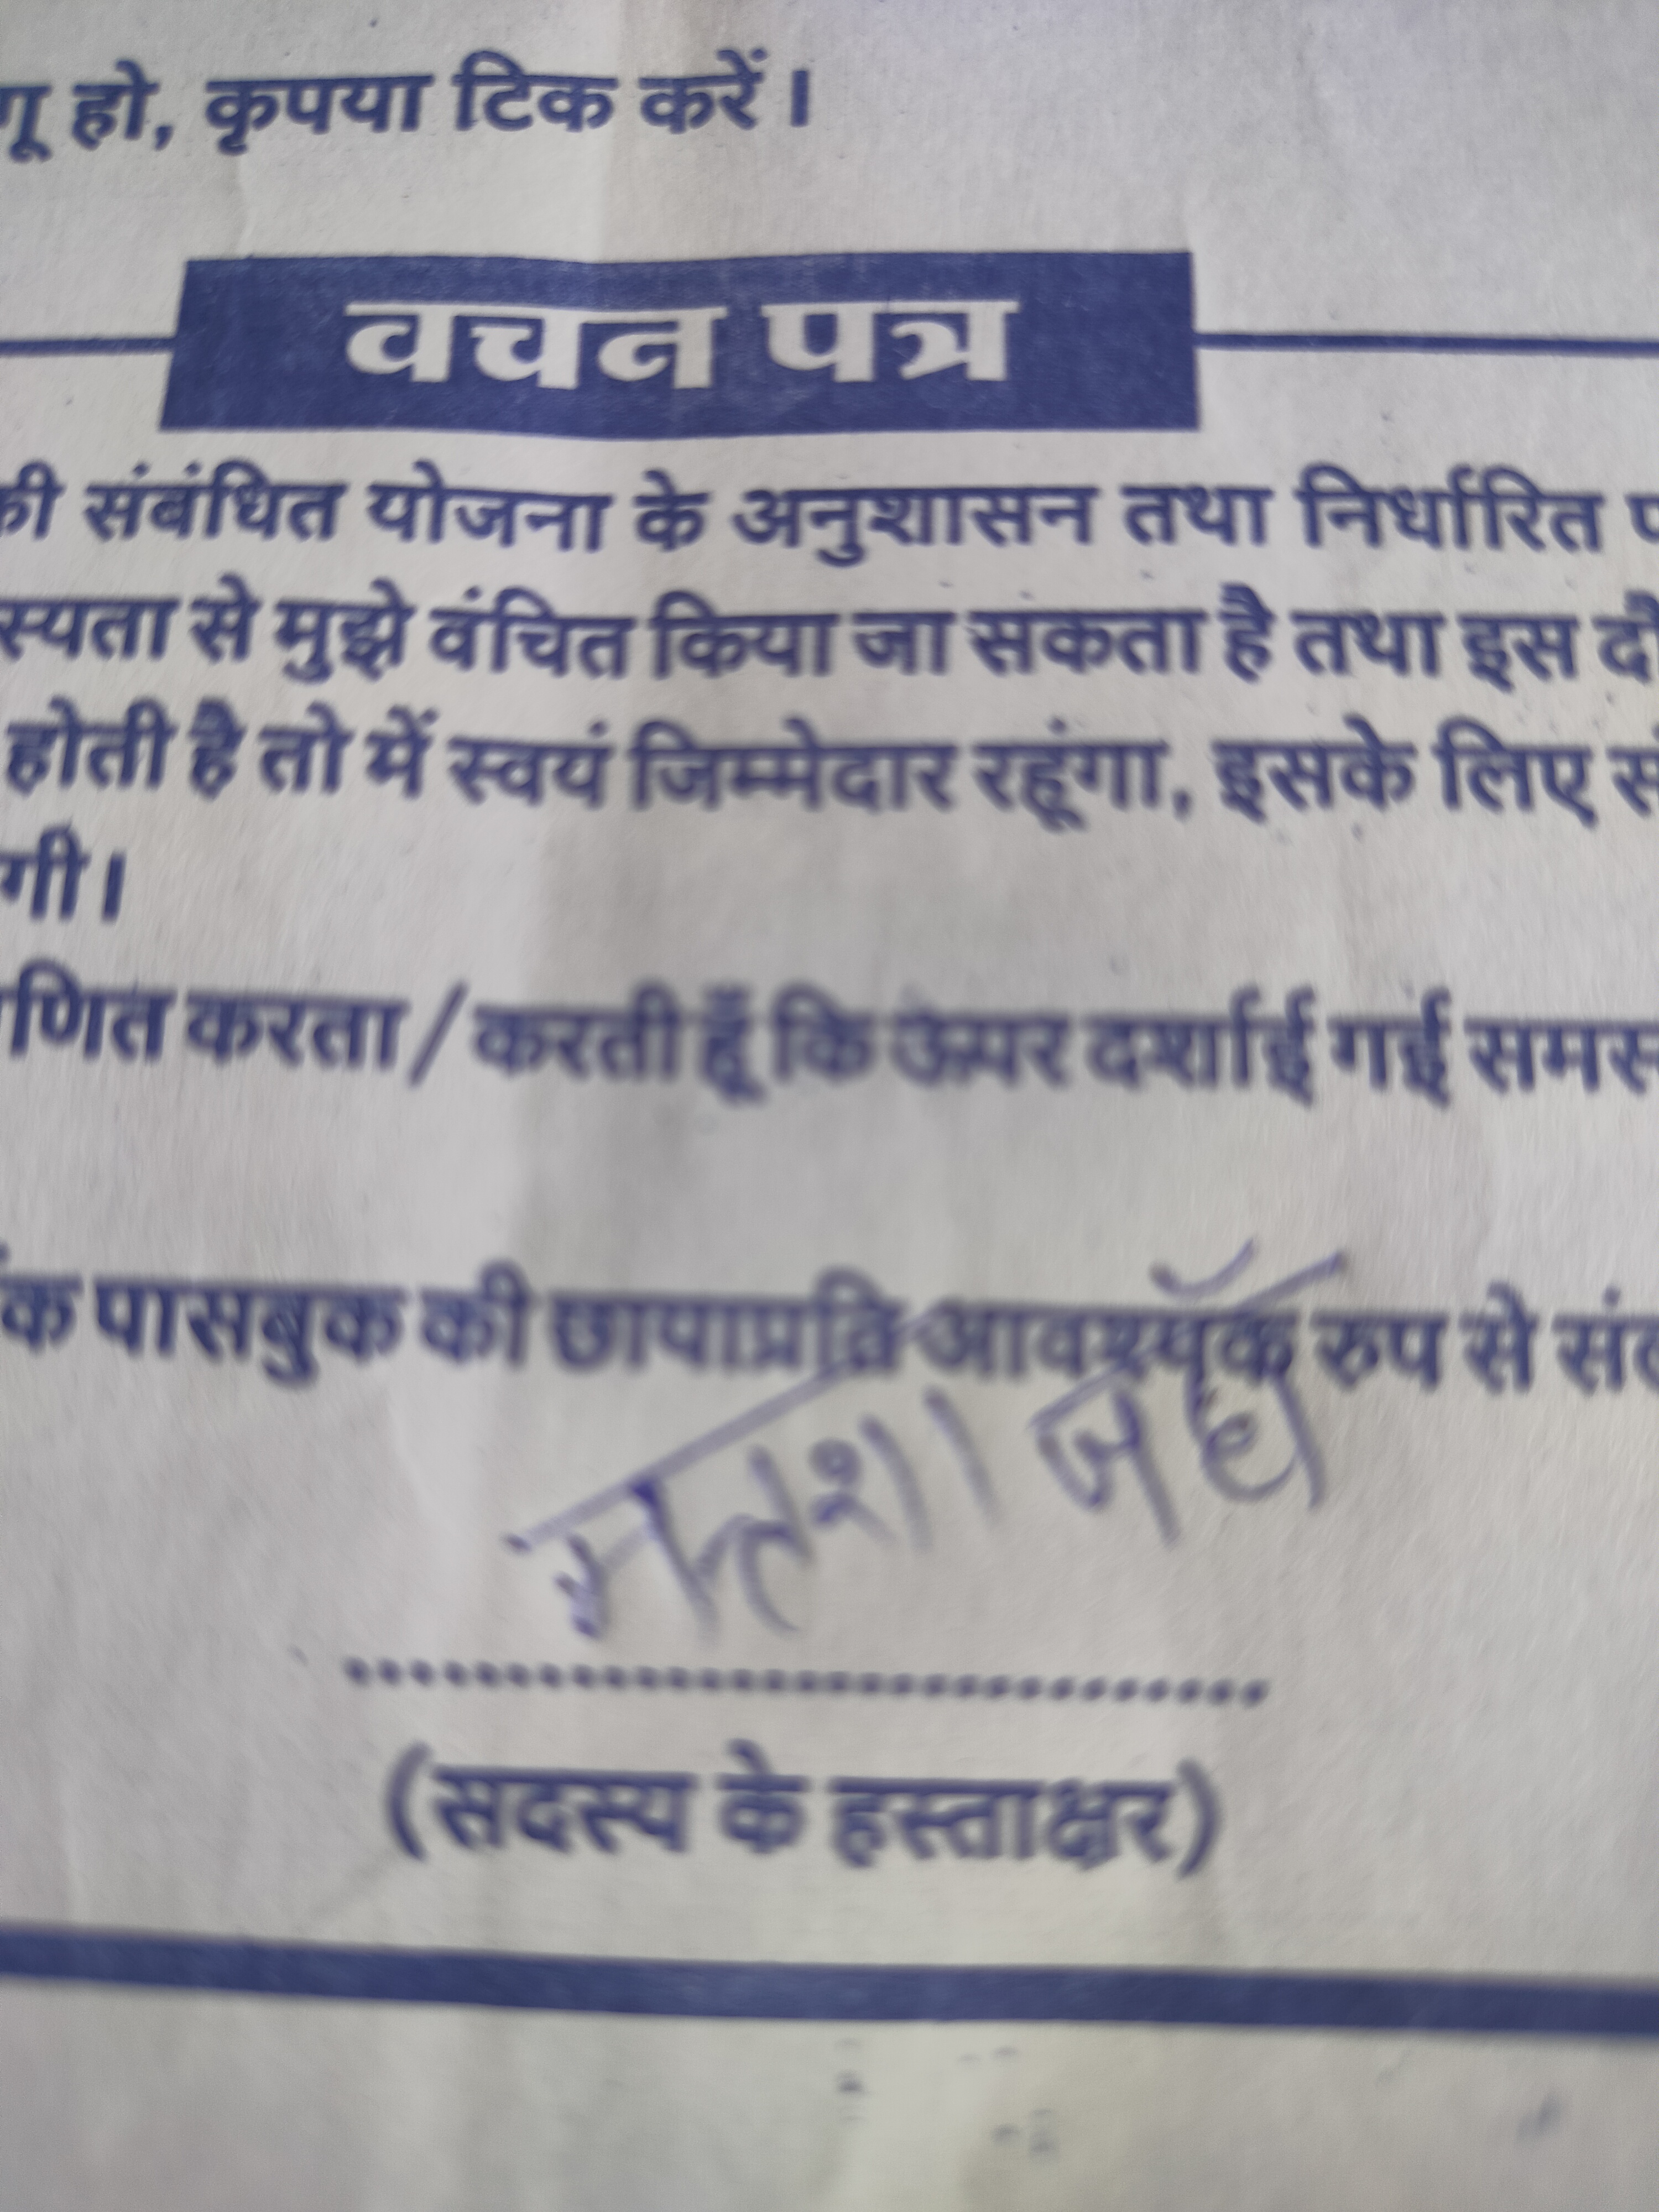 गू हो, कृपया टिक करें।
वचन पत्र
की संबंधित योजना के अनुशासन तथा निर्धारित
स्यता से मुझे वंचित किया जा सकता है तथा इस
होती है तो में स्वयं जिम्मेदार रहूंगा, इसके लिए
गी।
णित करता / करती हूँ कि ऊपर दर्शाई गई समस्
क पासबुक की छायाप्रति आवश्यक रुप से
(सदस्य के हस्ताक्षर)